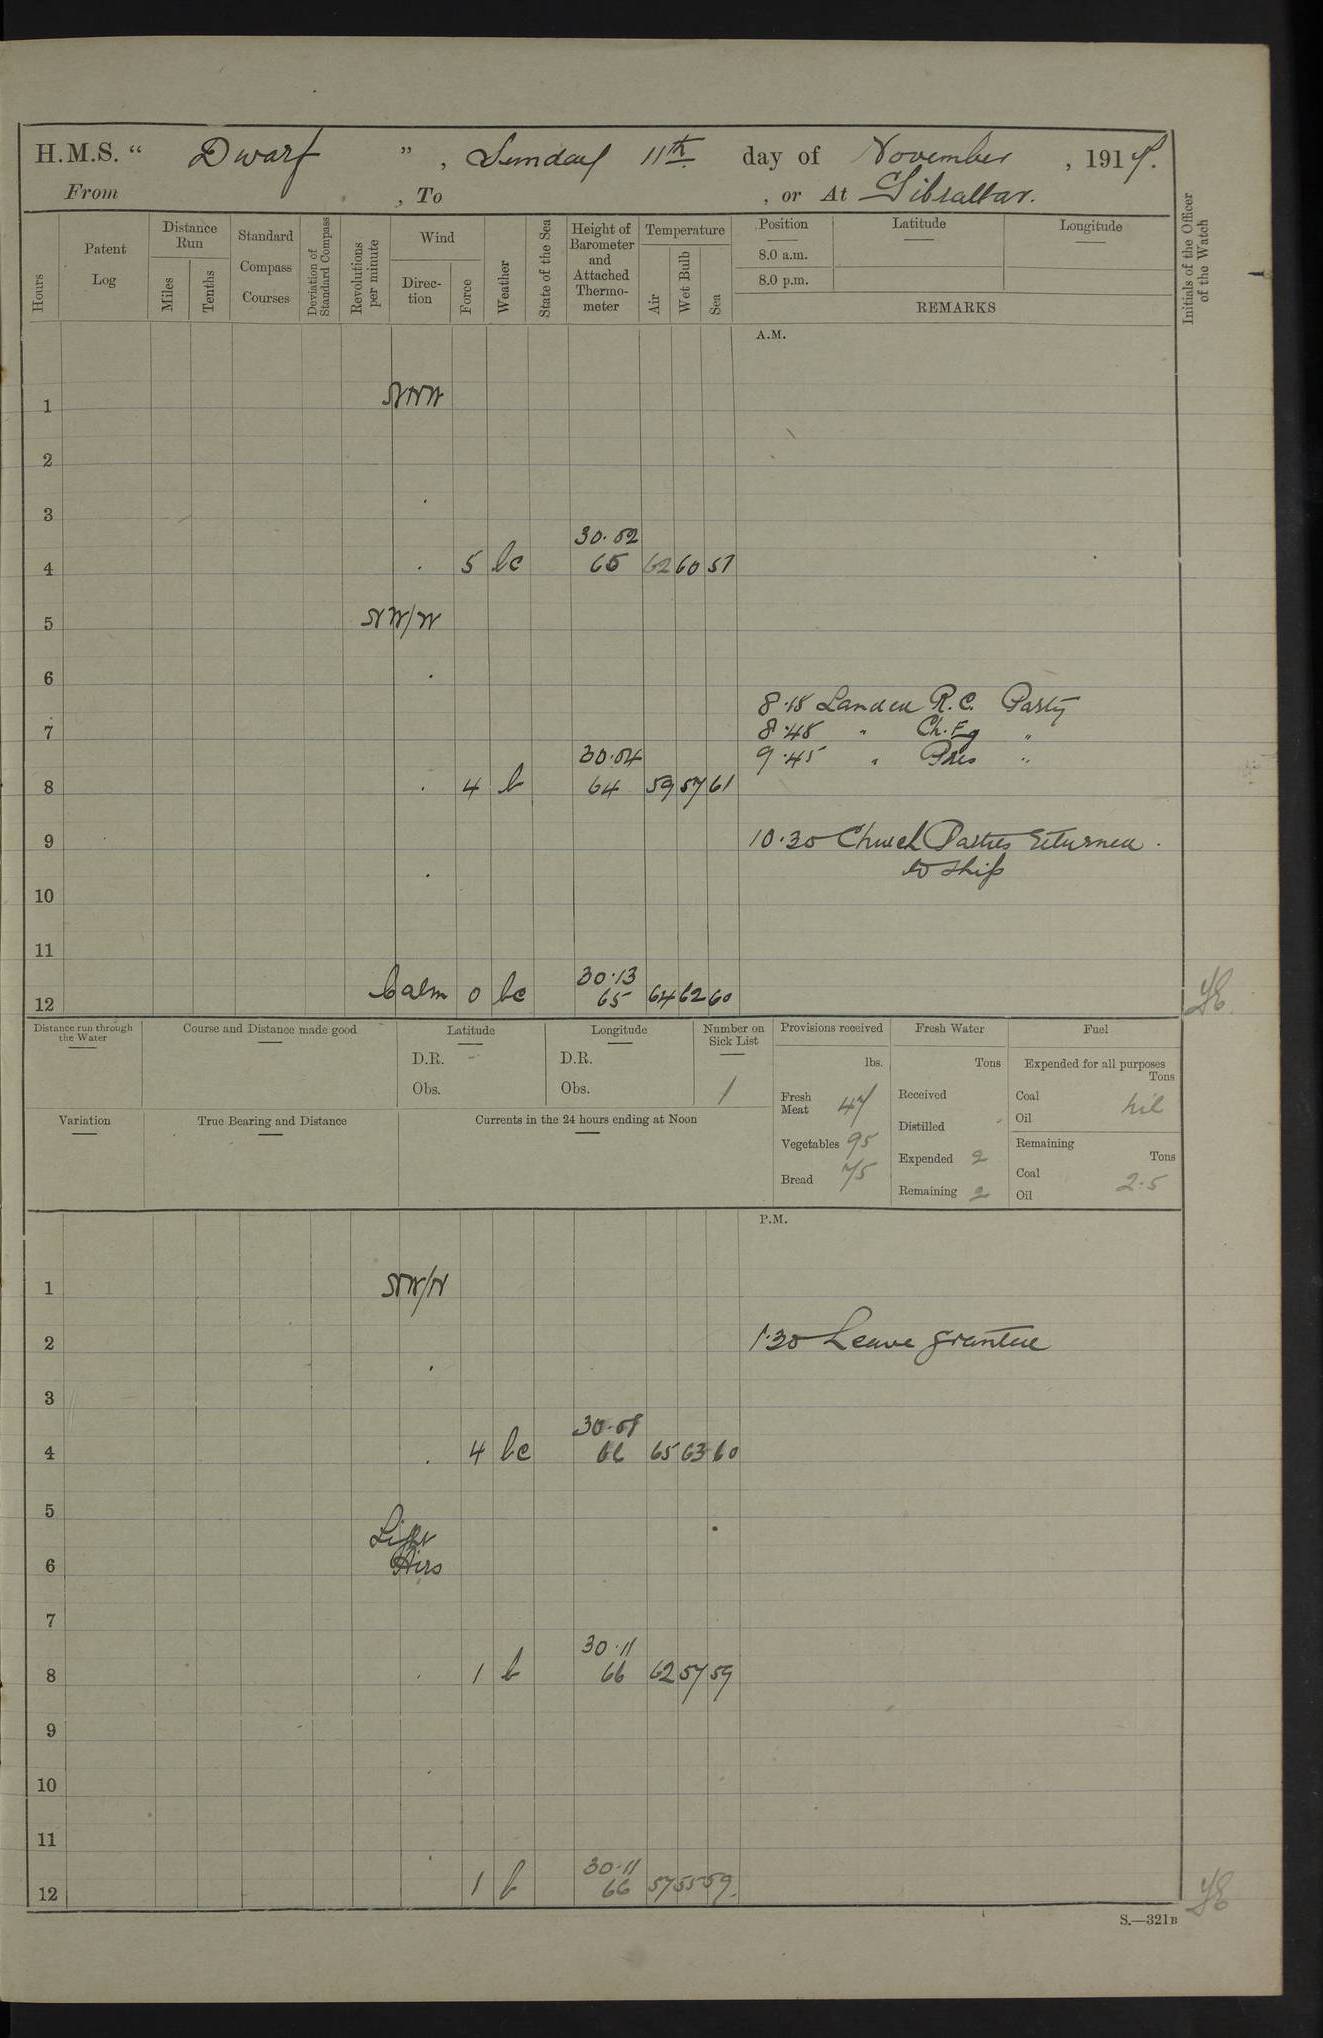 H.M.S. “ Dwarf ” , Sunday 11th day of November , 1917.
From , To , or At Gibraltar.
Hours
Patent Log
Distance Run
Miles
Tenths
Standard Compass Courses
Deviation of Standard Compass
Revolutions per minute
Wind
Direc-tion
Force
Weather
State of the Sea
Height of Barometer and Attached Thermo-meter
Temperature
Air
Wet Bulb
Sea
Position
8.0 a.m.
8.0 p.m.
Latitude
Longitude
REMARKS
Initials of the Officer of the Watch
A.M.
1 NNW
2
3
30.02
4 5 bc 65 62 60 57
5 NW/W
6
8.15 Landed R.C. Party
7 8.45 " Ch. Eg "
30.04 9.45 " Pres "
8 4 b 64 59 57 61
9 10.30 Church Parties returned
to ship
10
11
30.13
12 Calm 0 bc 65 64 62 60
Distance run through the Water
Course and Distance made good
Latitude
D.R.
Obs.
Longitude
D.R.
Obs.
Number on Sick List
1
Provisions received
lbs.
Fresh Meat 47
Vegetables 95
Bread 75
Fresh Water
Tons
Received
Distilled
Expended 2
Remaining 2
Fuel
Expended for all purposes
Tons
Coal
Oil nil
Remaining
Tons
Coal
Oil 2.5
Variation
True Bearing and Distance
Currents in the 24 hours ending at Noon
P.M.
1 NW/N
2 1.30 Leave granted
3
30.08
4 4 bc 66 65 63 60
5
Light
6 Airs
7
30.11
8 1 b 66 62 57 59
9
10
11
30.11
12 1 b 66 57 55 59
S.—321B